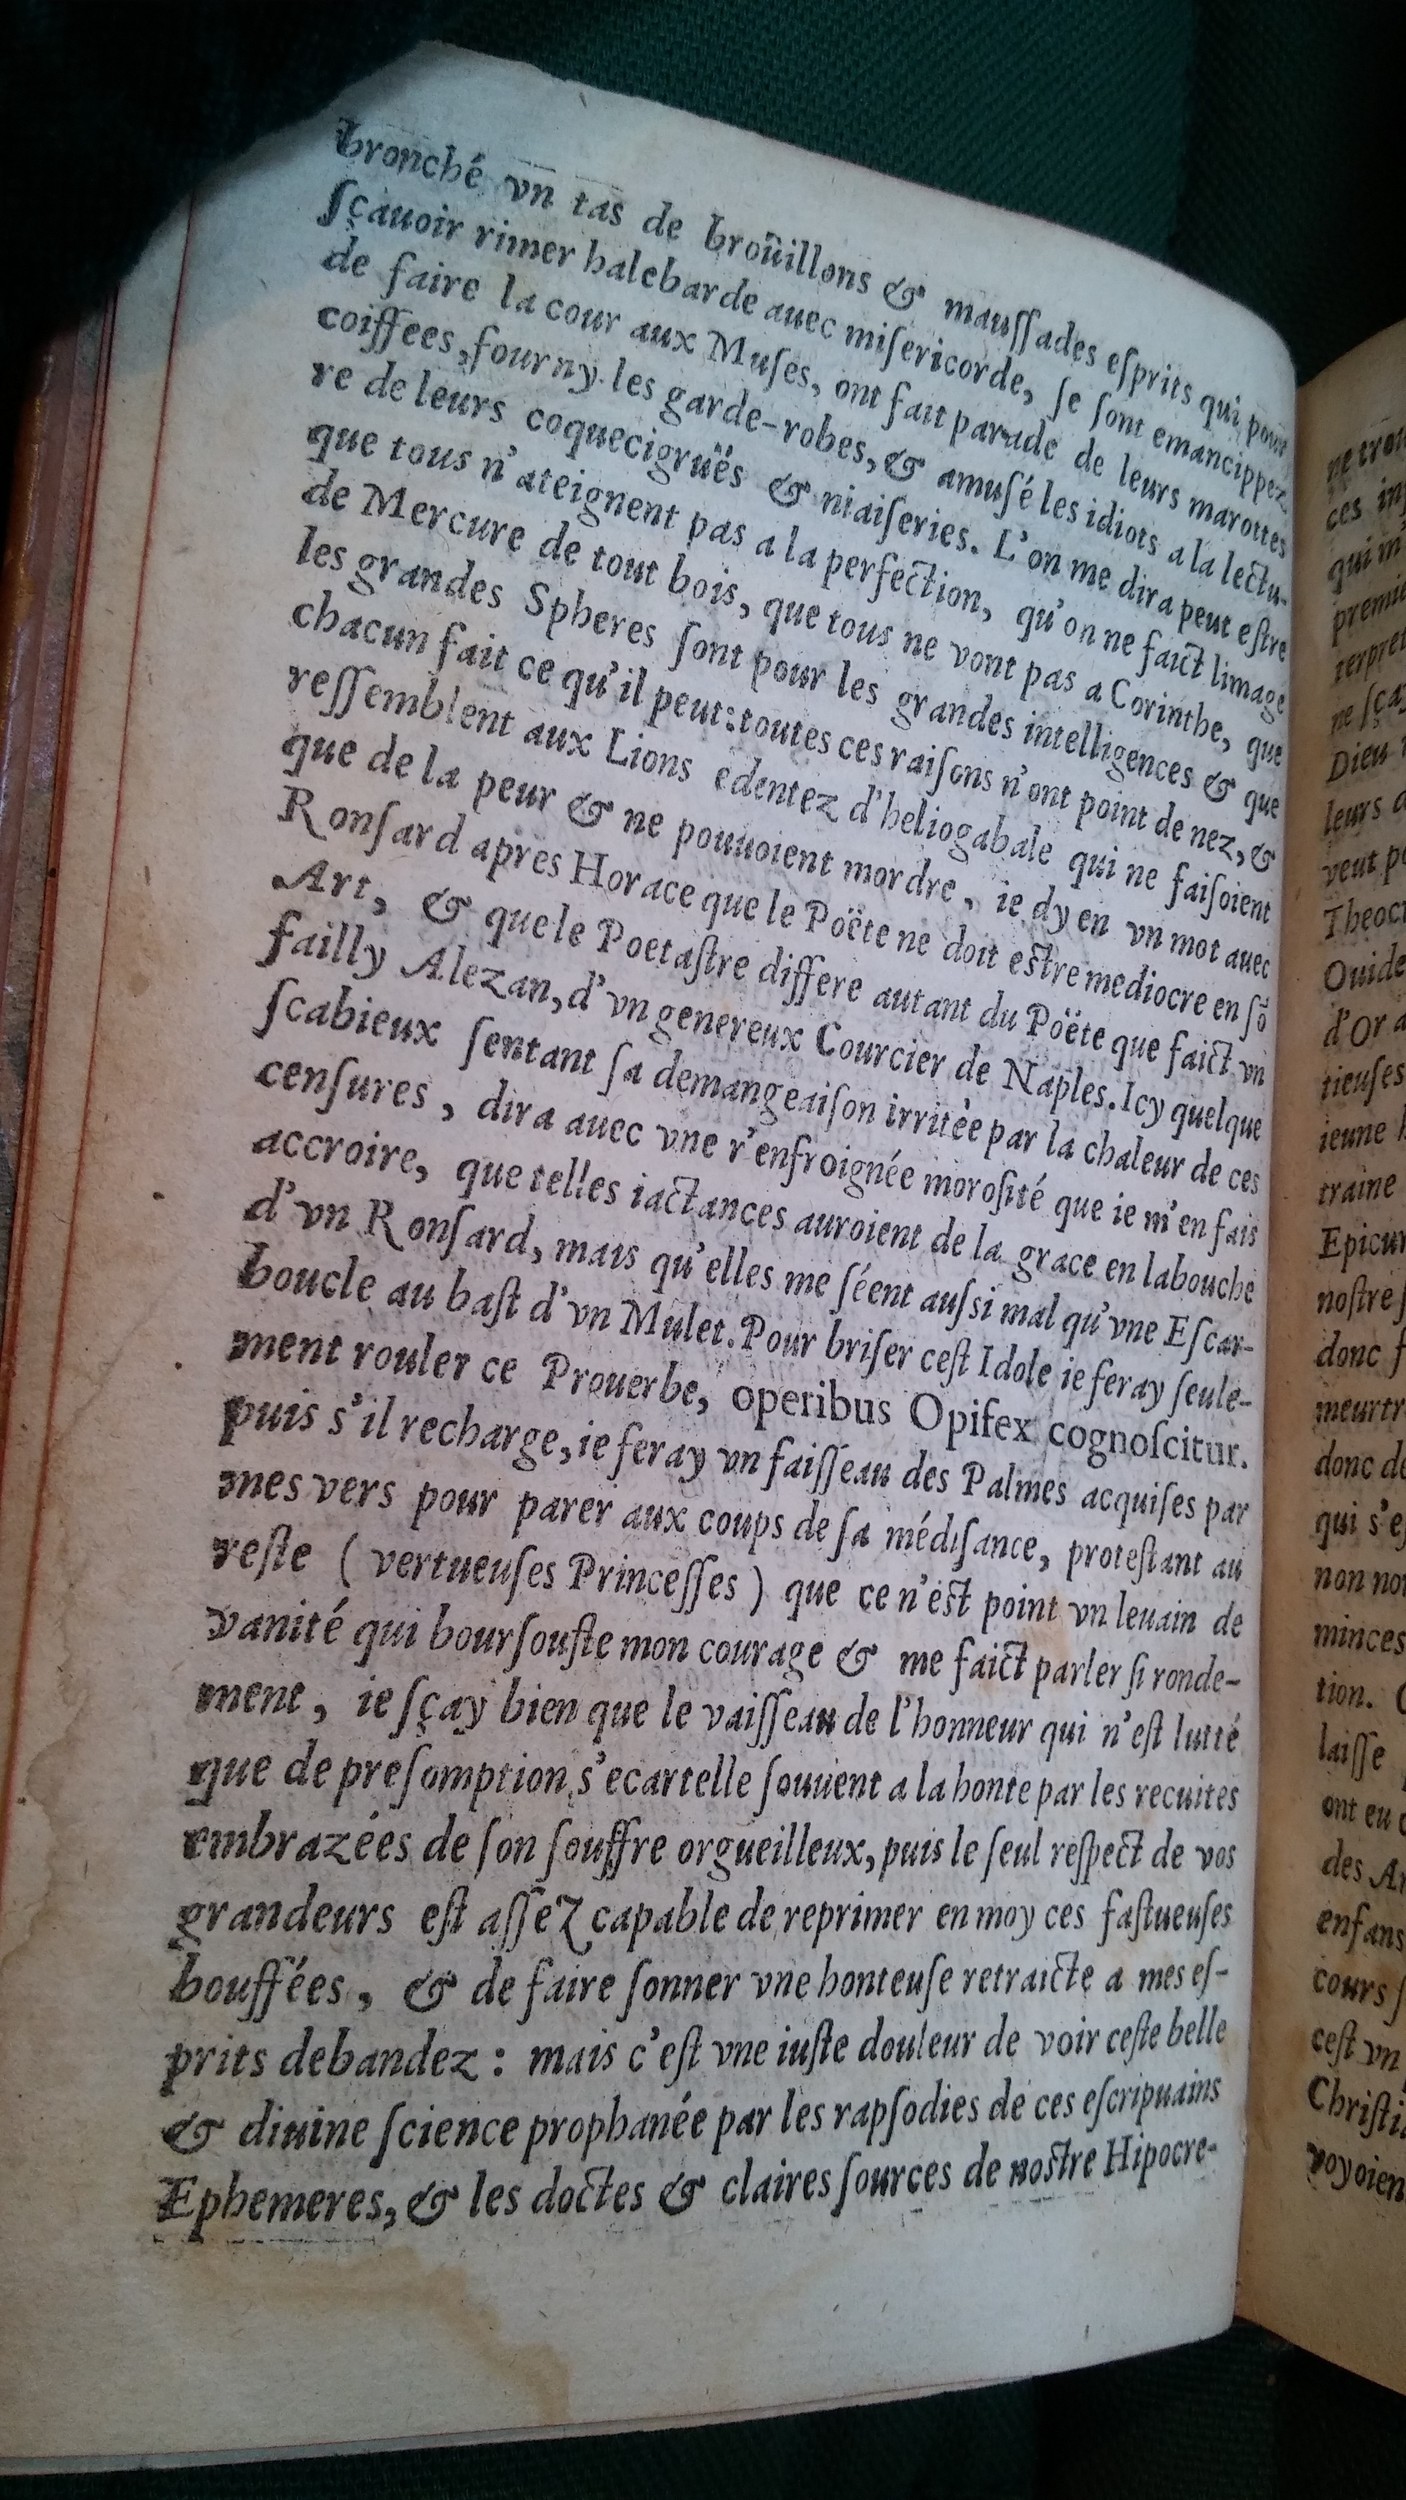 bronché vn tas de broüillons & maussades esprits qui pour
sçauoir rimer halebarde auec misericorde, se sont emancippez
de faire la cour aux Muses, ont fait parade de leurs marottes
coiffees, fourny les garde-robes, & amusé les idiots a la lectu-
re de leurs coquecigruës & niaiseries. L'on me dira peut estre
que tous n'ateignent pas a la perfection, qu'on ne faict limage
de Mercure de tout bois, que tous ne vont pas a Corinthe, que
les grandes Spheres sont pour les grandes intelligences & que
chacun fait ce qu'il peut: toutes ces raisons n'ont point de nez, &
ressemblent aux Lions edentez d'heliogabale qui ne faisoient
que de la peur & ne pouuoient mordre, ie dy en vn mot auec
Ronsard apres Horace que le Poëte ne doit estre mediocre en sõ
Art, & que le Poetastre differe autant du Poëte que faict vn
failly Alezan, d'vn genereux Courcier de Naples. Icy quelque
scabieux sentant sa demangeaison irritèe par la chaleur de ces
censures, dira auec vne r'enfroignée morosité que ie m'en fais
accroire, que telles iactances auroient de la grace en labouche
d'vn Ronsard, mais qu'elles me séent aussi mal qu'vne Escar-
boucle au bast d'vn Mulet. Pour briser cest Idole ie feray seule-
ment rouler ce Prouerbe, operibus Opifex cognoscitur.
puis s'il recharge, ie feray vn faisseau des Palmes acquises par
mes vers pour parer aux coups de sa médisance, protestant au
reste ( vertueuses Princesses ) que ce n'est point vn leuain de
vanité qui boursoufle mon courage & me faict parler si ronde-
ment, ie sçay bien que le vaisseau de l'honneur qui n'est lutté
que de presomption s'ecartelle souuent a la honte par les recuites
embrazées de son souffre orgueilleux, puis le seul respect de vos
grandeurs est assez capable de reprimer en moy ces fastueuses
bouffées, & de faire sonner vne honteuse retraicte a mes es-
prits debandez : mais c'est vne iuste douleur de voir ceste belle
& diuine science prophanée par les rapsodies de ces escripuains
Ephemeres, & les doctes & claires sources de nostre Hipocre-
ces
premie
Dieu
leurs
veut
Theoc
Ouide
d'Or a
tieuses
ieune
traine
Epicu
nostre
donc
meurtr
donc de
qui s'es
non no
minces
tion.
laisse
ont eu
des Ar
enfans
cours
cest vn
Christi
voyoien